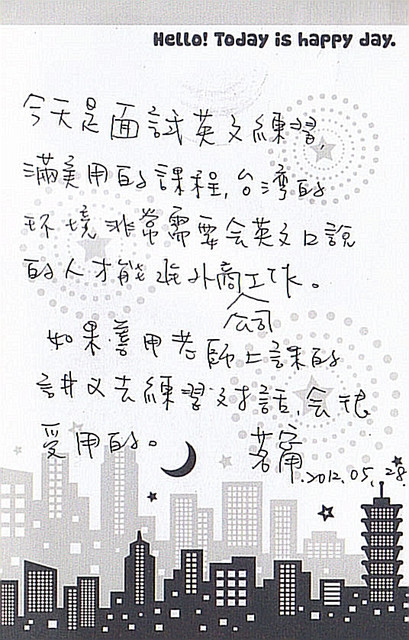 Hello! Today is happy day.
今天是面試英文練習,
滿美用的課程,台灣的
环境非常需要会英文口說
的人才能進外商公司工作。
如果善用老師上課的
討又去練習文对話,会很
受用的。
若甯.2012.05.28.